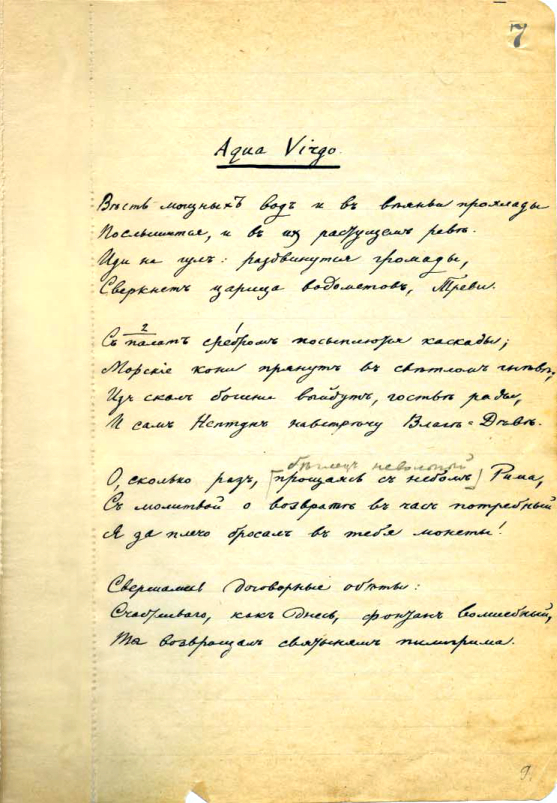 7
Aqua Virgo.
Вѣсть мощныхъ водъ и въ вѣяньи прохлады
Послышится, и въ их растущемъ ревѣ.
Иди на гулъ: раздвинутся громады,
Сверкнетъ царица водометовъ, Треви.
2
Съ палатъ сребромъ посыплются каскады;
Морскіе кони прянутъ въ свѣтломъ гнѣвѣ;
Изъ скалъ богини выйдутъ, гостью рады,
И самъ Нептунъ навстрѣчу Влагѣ-Дѣвѣ.
бѣглецъ невольный
О, сколько разъ, [прощаясь съ небомъ] Рима,
Съ молитвой о возвратѣ въ часъ потребный
Я за плечо бросалъ въ тебя монеты!
Свершались договорные обѣты:
Счастливаго, какъ днесь, фонтанъ волшебный,
Ты возвращалъ святынямъ пилигрима.
9.